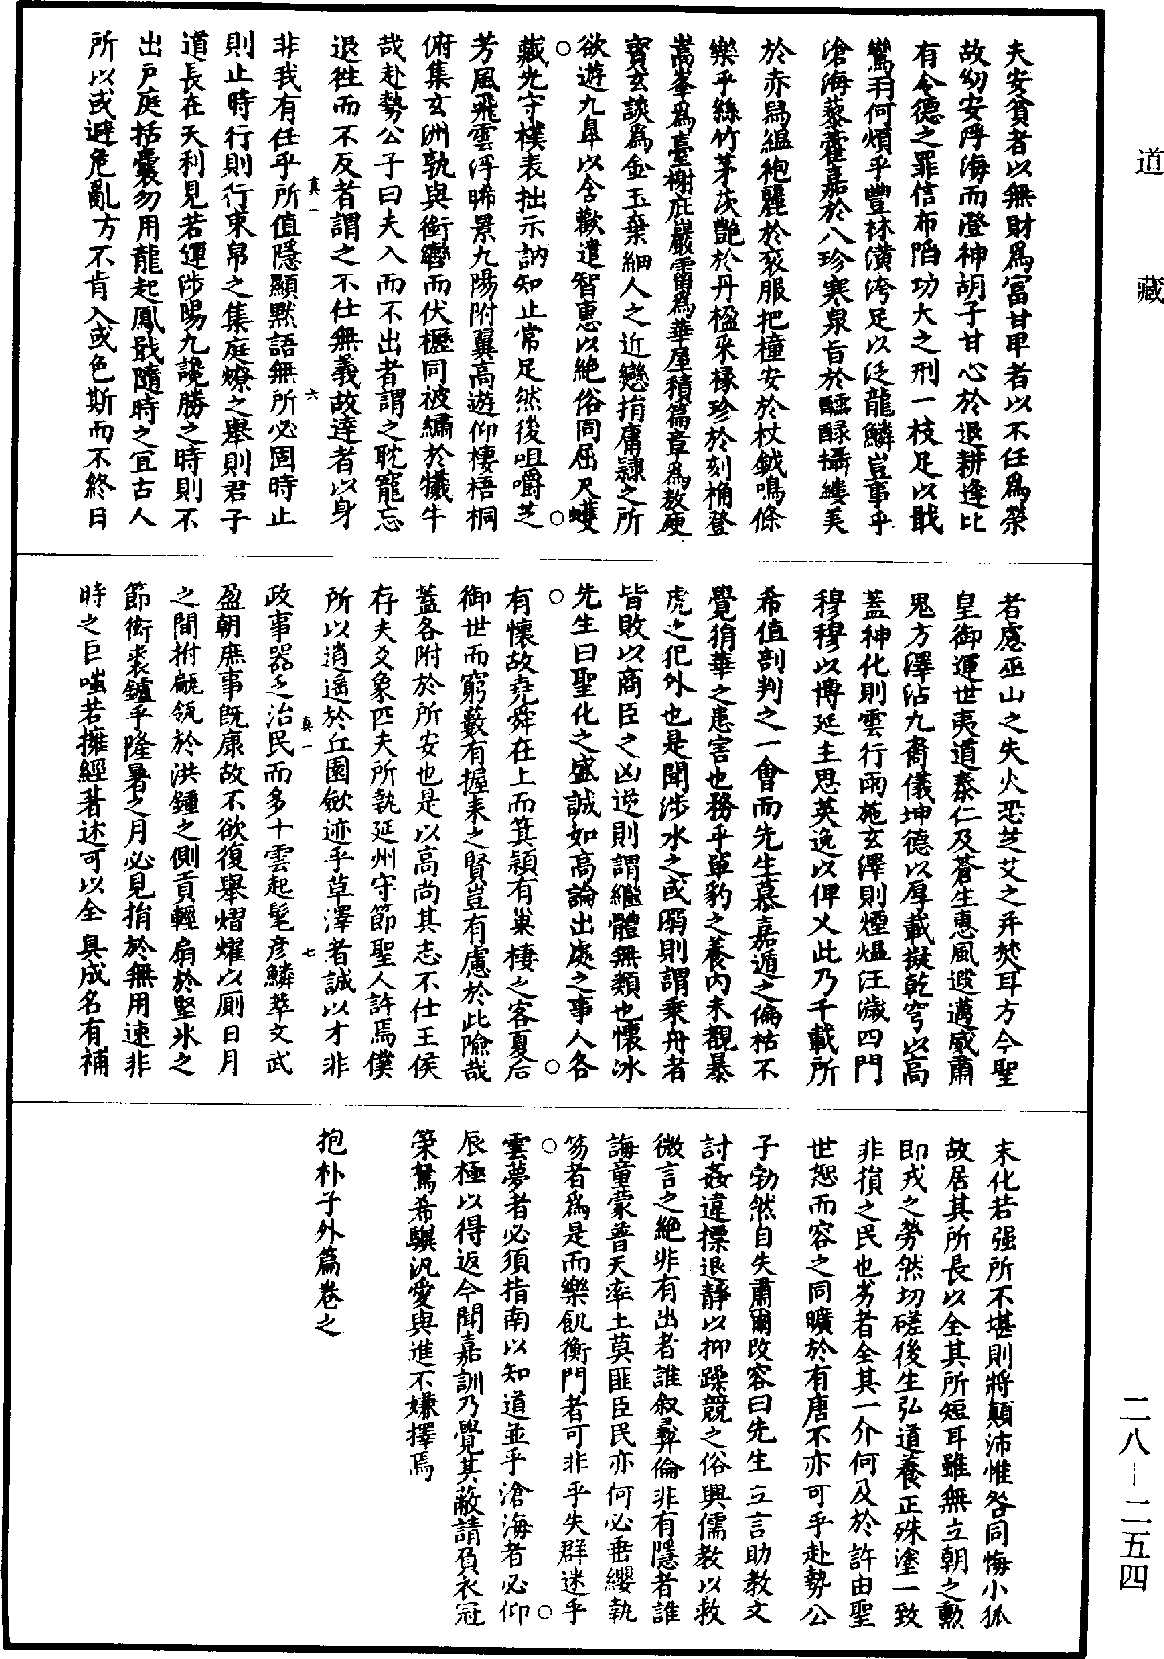 道藏
夫安貧者以無財為富甘卑者以不仕為榮
故幼安浮海而澄神胡子甘心於退耕逢比
有令德之罪信布陷功大之刑一枝足以戢
鸞羽何煩乎豐林潢洿足以泛龍鱗豈事乎
滄海藜藿嘉於八珍寒泉旨於醽醁攝縷美
於赤舄縕袍麗於衮服把橦安於杖鉞鳴條
樂乎絲竹茅茨艷於丹楹采椽珍於刻桷登
嵩峯為臺榭庇巖霤為華屋積篇章為敖庾
寳玄談為金玉棄細人之近戀捐庸隸之所
欲遊九臯以含歡遣智惠以絶俗同屈尺蠖
藏光守樸表拙示訥知止常足然後咀嚼芝
芳風飛雲浮晞景九陽附翼高遊仰棲梧桐
俯集玄洲孰與銜轡而伏櫪同被繡於犧牛
哉赴勢公子曰夫入而不出者謂之耽寵忘
退往而不反者謂之不仕無義故達者以身
真一 六
非我有任乎所值隱顯默語無所必固時止
則止時行則行束帛之集庭燎之舉則君子
道長在天利見若運涉陽九讒勝之時則不
出戶庭括囊勿用龍起鳳戢隨時之宜古人
所以或避危亂方不肯入或色斯而不終日
者慮巫山之失火恐芝艾之并焚耳方今聖
皇御運世夷道泰仁及蒼生惠風遐邁威肅
鬼方澤沾九裔儀坤德以厚載擬乾穹以高
蓋神化則雲行雨施玄澤則煙熅汪濊四門
穆穆以博延主思英逸以俾乂此乃千載所
希值剖判之一會而先生慕嘉遁之偏枯不
覺狷華之患害也務乎單豹之養内未覩暴
虎之犯外也是聞涉水之或溺則謂乘舟者
皆敗以商臣之凶逆則謂繼體無類也懷冰
先生曰聖化之盛誠如高論出處之事人各
有懷故堯舜在上而箕潁有巢棲之客夏后
御世而窮藪有握耒之賢豈有慮於此險哉
蓋各附於所安也是以高尚其志不仕王侯
存夫爻象匹夫所執延州守節聖人許焉僕
所以逍遥於丘園歛迹乎草澤者誠以才非
真一 七
政事器乏治民而多士雲起髦彦鱗萃文武
盈朝庶事既康故不欲復舉熠燿以厠日月
之間拊甂瓴於洪鍾之側貢輕扇於堅氷之
節衒裘鑪乎隆暑之月必見捐於無用速非
時之巨嗤若擁經著述可以全真成名有補
末化若强所不堪則將顛沛惟咎同悔小狐
故居其所長以全其所短耳雖無立朝之勳
即戎之勞然切磋後生弘道養正殊塗一致
非損之民也劣者全其一介何及於許由聖
世恕而容之同曠於有唐不亦可乎赴勢公
子勃然自失肅爾改容曰先生立言助教文
討姦違摽退靜以抑躁競之俗興儒教以救
微言之絶非有出者誰叙彝倫非有隱者誰
誨童蒙普天率土莫匪臣民亦何必垂纓執
笏者為是而樂飢衡門者可非乎失群迷乎
雲夢者必須指南以知道並乎滄海者必仰
辰極以得返今聞嘉訓乃覺其蔽請負衣冠
策駑希驥汎愛與進不嫌擇焉
抱朴子外篇卷之一
二八－二五四